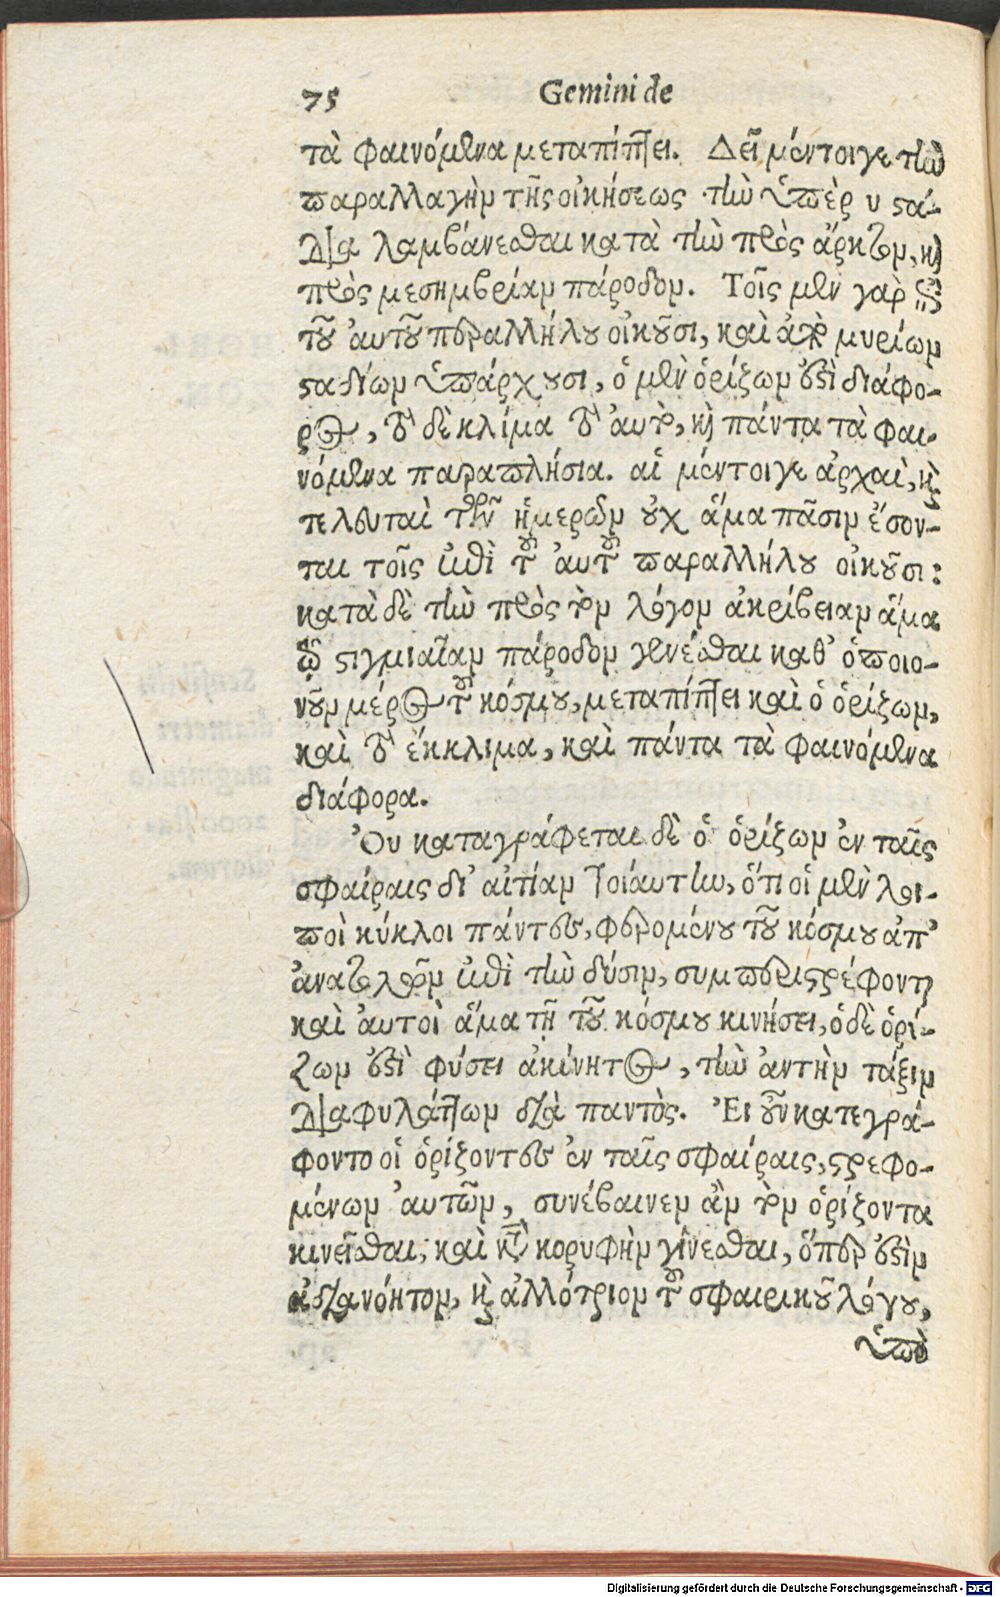 75 Gemini de
τὰ φαινόμενα μεταπίπτει. Δεῖ μέντοιγε τὴν
παραλλαγὴν τῆς οἰκήσεως τὴν ὑπὲρ υ στά-
δια λαμβάνεσθαι κατὰ τὴν πρὸς ἄρκτον, καὶ
πρὸς μεσημβρίαν πάροδον. Τοῖς μὲν γὰρ
τοῦ αυτοῦ παραλλήλου οἰκοῦσι, καὶ μυρίων
σταδίων ὑπάρχουσι, ὁ μὲν ὁρίζων ἐστὶ διάφο-
ρος, τὸ δὲ κλίμα τὸ αυτὸ, καὶ πάντα τὰ φαι-
νόμενα παραπλήσια. αἱ μέντοιγε ἀρχαὶ, καὶ
τελευταὶ τῶν ἡμερῶν οὐχ ἅμα πᾶσιν ἔσον-
ται τοῖς ἐπὶ τοῦ αυτοῦ παραλλήλου οἰκοῦσι:
κατὰ δὲ τὴν πρὸς τὸν λόγον ἀκρίβειαν ἅμα
τῷ στιγμιαῖαν πάροδον γενέσθαι καθ’ ὁποιο-
νοῦν μέρος τοῦ κόσμου, μεταπίπτει καὶ ὁ ὁρίζων,
καὶ τὸ ἔκκλιμα, καὶ πάντα τὰ φαινόμενα
διάφορα.
Ὀυ καταγράφεται δὲ ὁ ὁρίζων ἐν ταῖς
σφαίραις δι’ αἰτίαν τοιάυτην, ὅτι οἱ μὲν λοι-
ποὶ κύκλοι πάντες, φερομένου τοῦ κόσμου ἀπ’
ἀνατολῶν ἐπὶ τὴν δύσιν, συμπεριστρέφονται
καὶ ἀυτοὶ ἅμα τῇ τοῦ κόσμου κινήσει, ὁ δὲ ὁρί-
ζων ἐστὶ φύσει ἀκίνητος, τὴν ἀντὴν τάξιν
διαφυλάττων διὰ παντὸς. Ἐι οὖν κατεγρά-
φοντο οἱ ὁρίζοντες ἐν ταῖς σφαίραις, στρεφο-
μένων ἀυτῶν, συνέβαινεν ἂν τὸν ὁρίζοντα
κινεῖσθαι, καὶ κατὰ κορυφὴν γίνεσθαι, ὅπερ ἐστὶν
ἀδιανόητον, καὶ ἀλλότριον τοῦ σφαιρικοῦ λόγου,
ὑπὸ
Digitalisierung gefördert durch die Deutsche Forschungsgemeinschaft - DFG